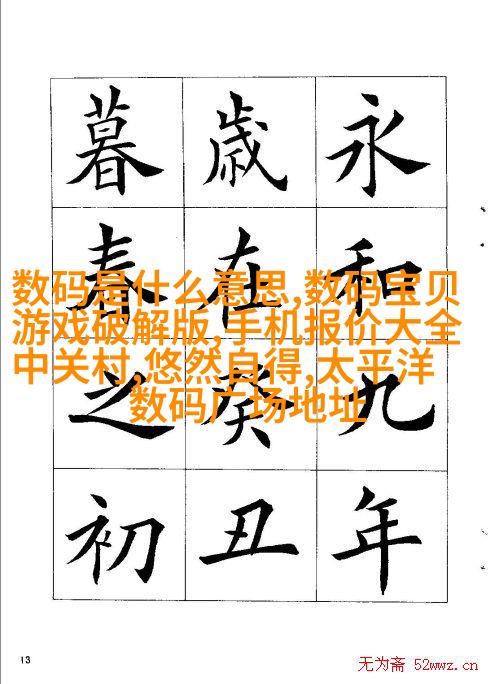 永和九年
歲在癸丑
暮春之初
数码是什么意思,数码宝贝
游戏破解版,手机报价大全
中关村,悠然自得,太平洋
数码广场地址
13
无为斋 52wwz.cn